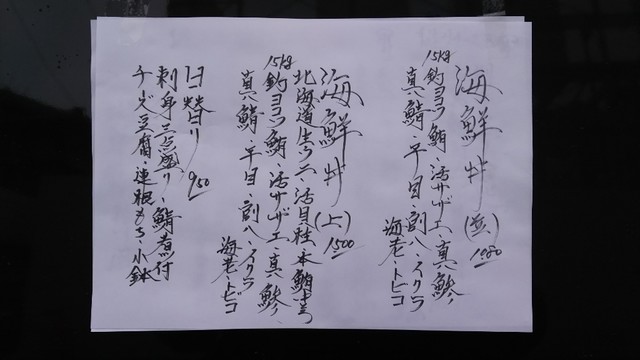 海鮮丼(並)1080
15kg釣ヨコワ鮪、活サザエ、真鯵、
真鯖、平目、割八、イクラ
海老、トビコ
海鮮丼(上)1500
北海道生ウニ、活貝柱、本鮪中とろ
15kg釣ヨコワ鮪、活サザエ、真鯵、
真鯖、平目、割八、イクラ
海老、トビコ
日替り 950
刺身三点盛り、鯖煮付
チーズ豆腐、連根もち、小鉢